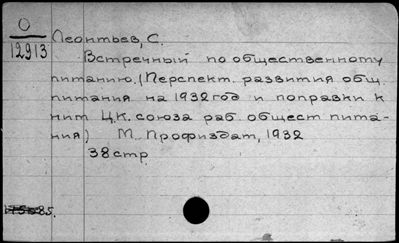 О
12913
Леонтьев, С.
Встречный по общественному
питанию. (Перспект. развития общ.
питания на 1932 год и поправки к
ним Ц.К. союза раб. общест пита-
ния) М. Профиздат, 1932
38 стр